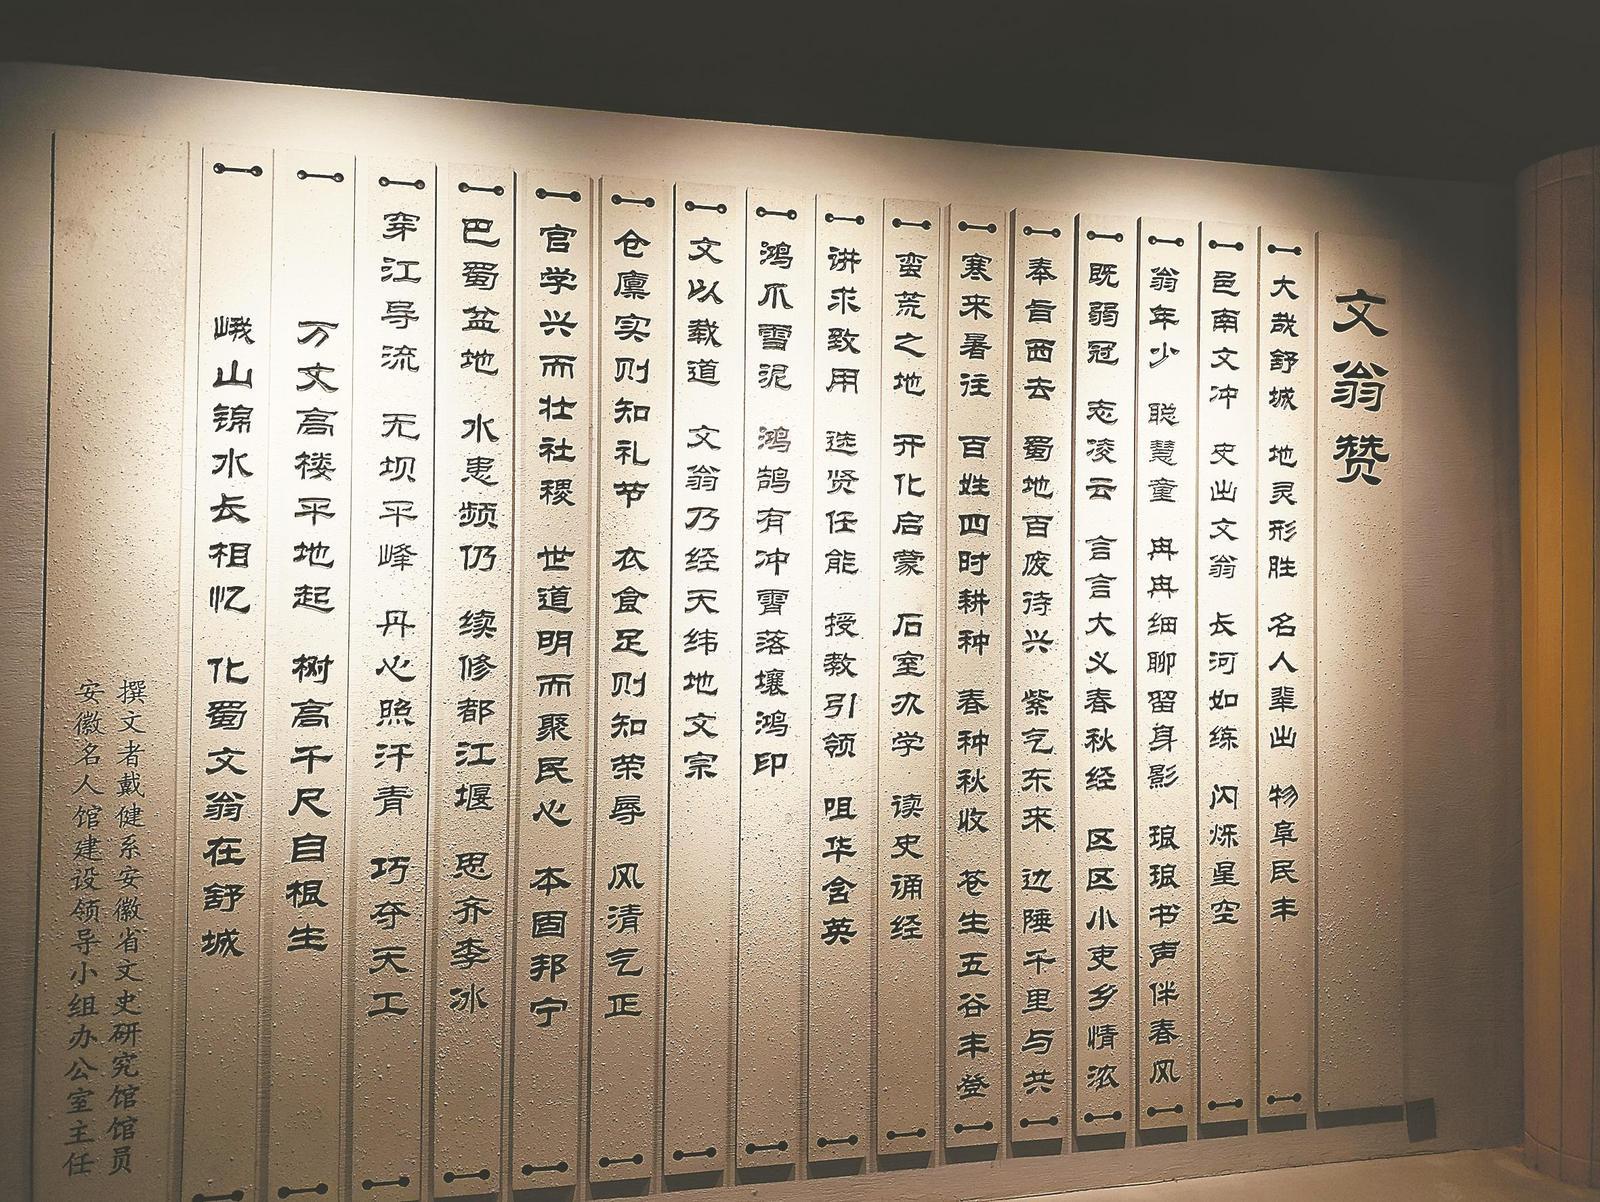 文翁赞
大哉舒城 地灵形胜 名人辈出 物阜民丰
邑南文冲 史出文翁 长河如练 闪烁星空
翁年少 聪慧童 冉冉细聊留身影 琅琅书声伴春风
既弱冠 志凌云 言言大义春秋经 区区小吏乡情浓
奉旨西去 蜀地百废待兴 紫气东来 边陲千里与共
寒来暑往 百姓四时耕种 春种秋收 苍生五谷丰登
蛮荒之地 开化启蒙 石室办学 读史诵经
讲求致用 选贤任能 授教引领 咀华含英
鸿爪雪泥 鸿鹄有冲霄落壤鸿印
文以载道 文翁乃经天纬地文宗
仓廪实则知礼节 衣食足则知荣辱 风清气正
官学兴而壮社稷 世道明而聚民心 本固邦宁
巴蜀盆地 水患频仍 续修都江堰 思齐李冰
穿江导流 无坝平峰 丹心照汗青 巧夺天工
万丈高楼平地起 树高千尺自根生
峨山锦水长相忆 化蜀文翁在舒城
撰文者戴健系安徽省文史研究馆馆员
安徽名人馆建设领导小组办公室主任